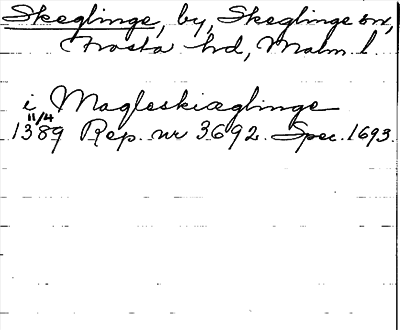 Skeglinge, by, Skeglinge sn,
Frosta hd, Malm. l.
i Magleskiæglinge
11/4
1389 Rep. nr 3692. Spec. 1693.